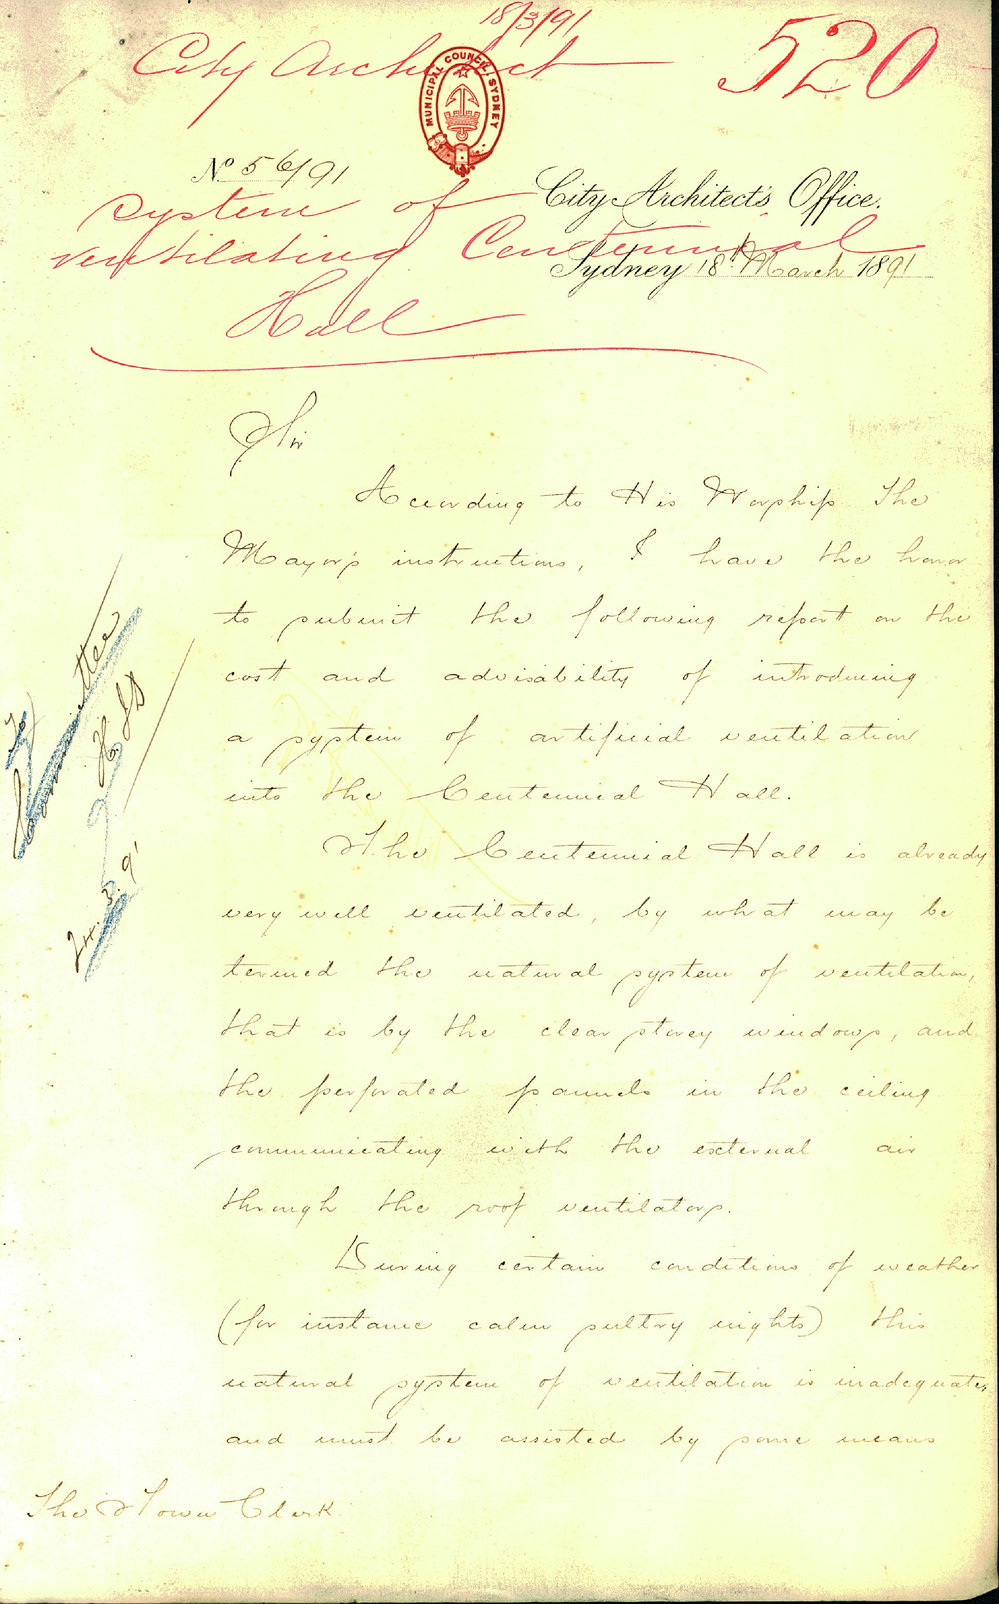 18/3/91
City Architect 520
MUNICIPAL COUNCIL SYDNEY
No 56/91
City Architect's Office.
System of
ventilating Centennial
Sydney 18th March 1891
Hall
Sir
According to His Worship The
Mayor's instructions, I have the honor
to submit the following report on the
cost and advisability of introducing
a system of artificial ventilation
into the Centennial Hall.
The Centennial Hall is already
very well ventilated, by what may be
termed the natural system of ventilation,
that is by the clear storey windows, and
the perforated pannels in the ceiling
communicating with the external air
through the roof ventilators.
During certain conditions of weather
(for instance calm sultry nights) this
natural system of ventilation is inadequate,
and must be assisted by some means
The Town Clerk.
Committee
24.3.91